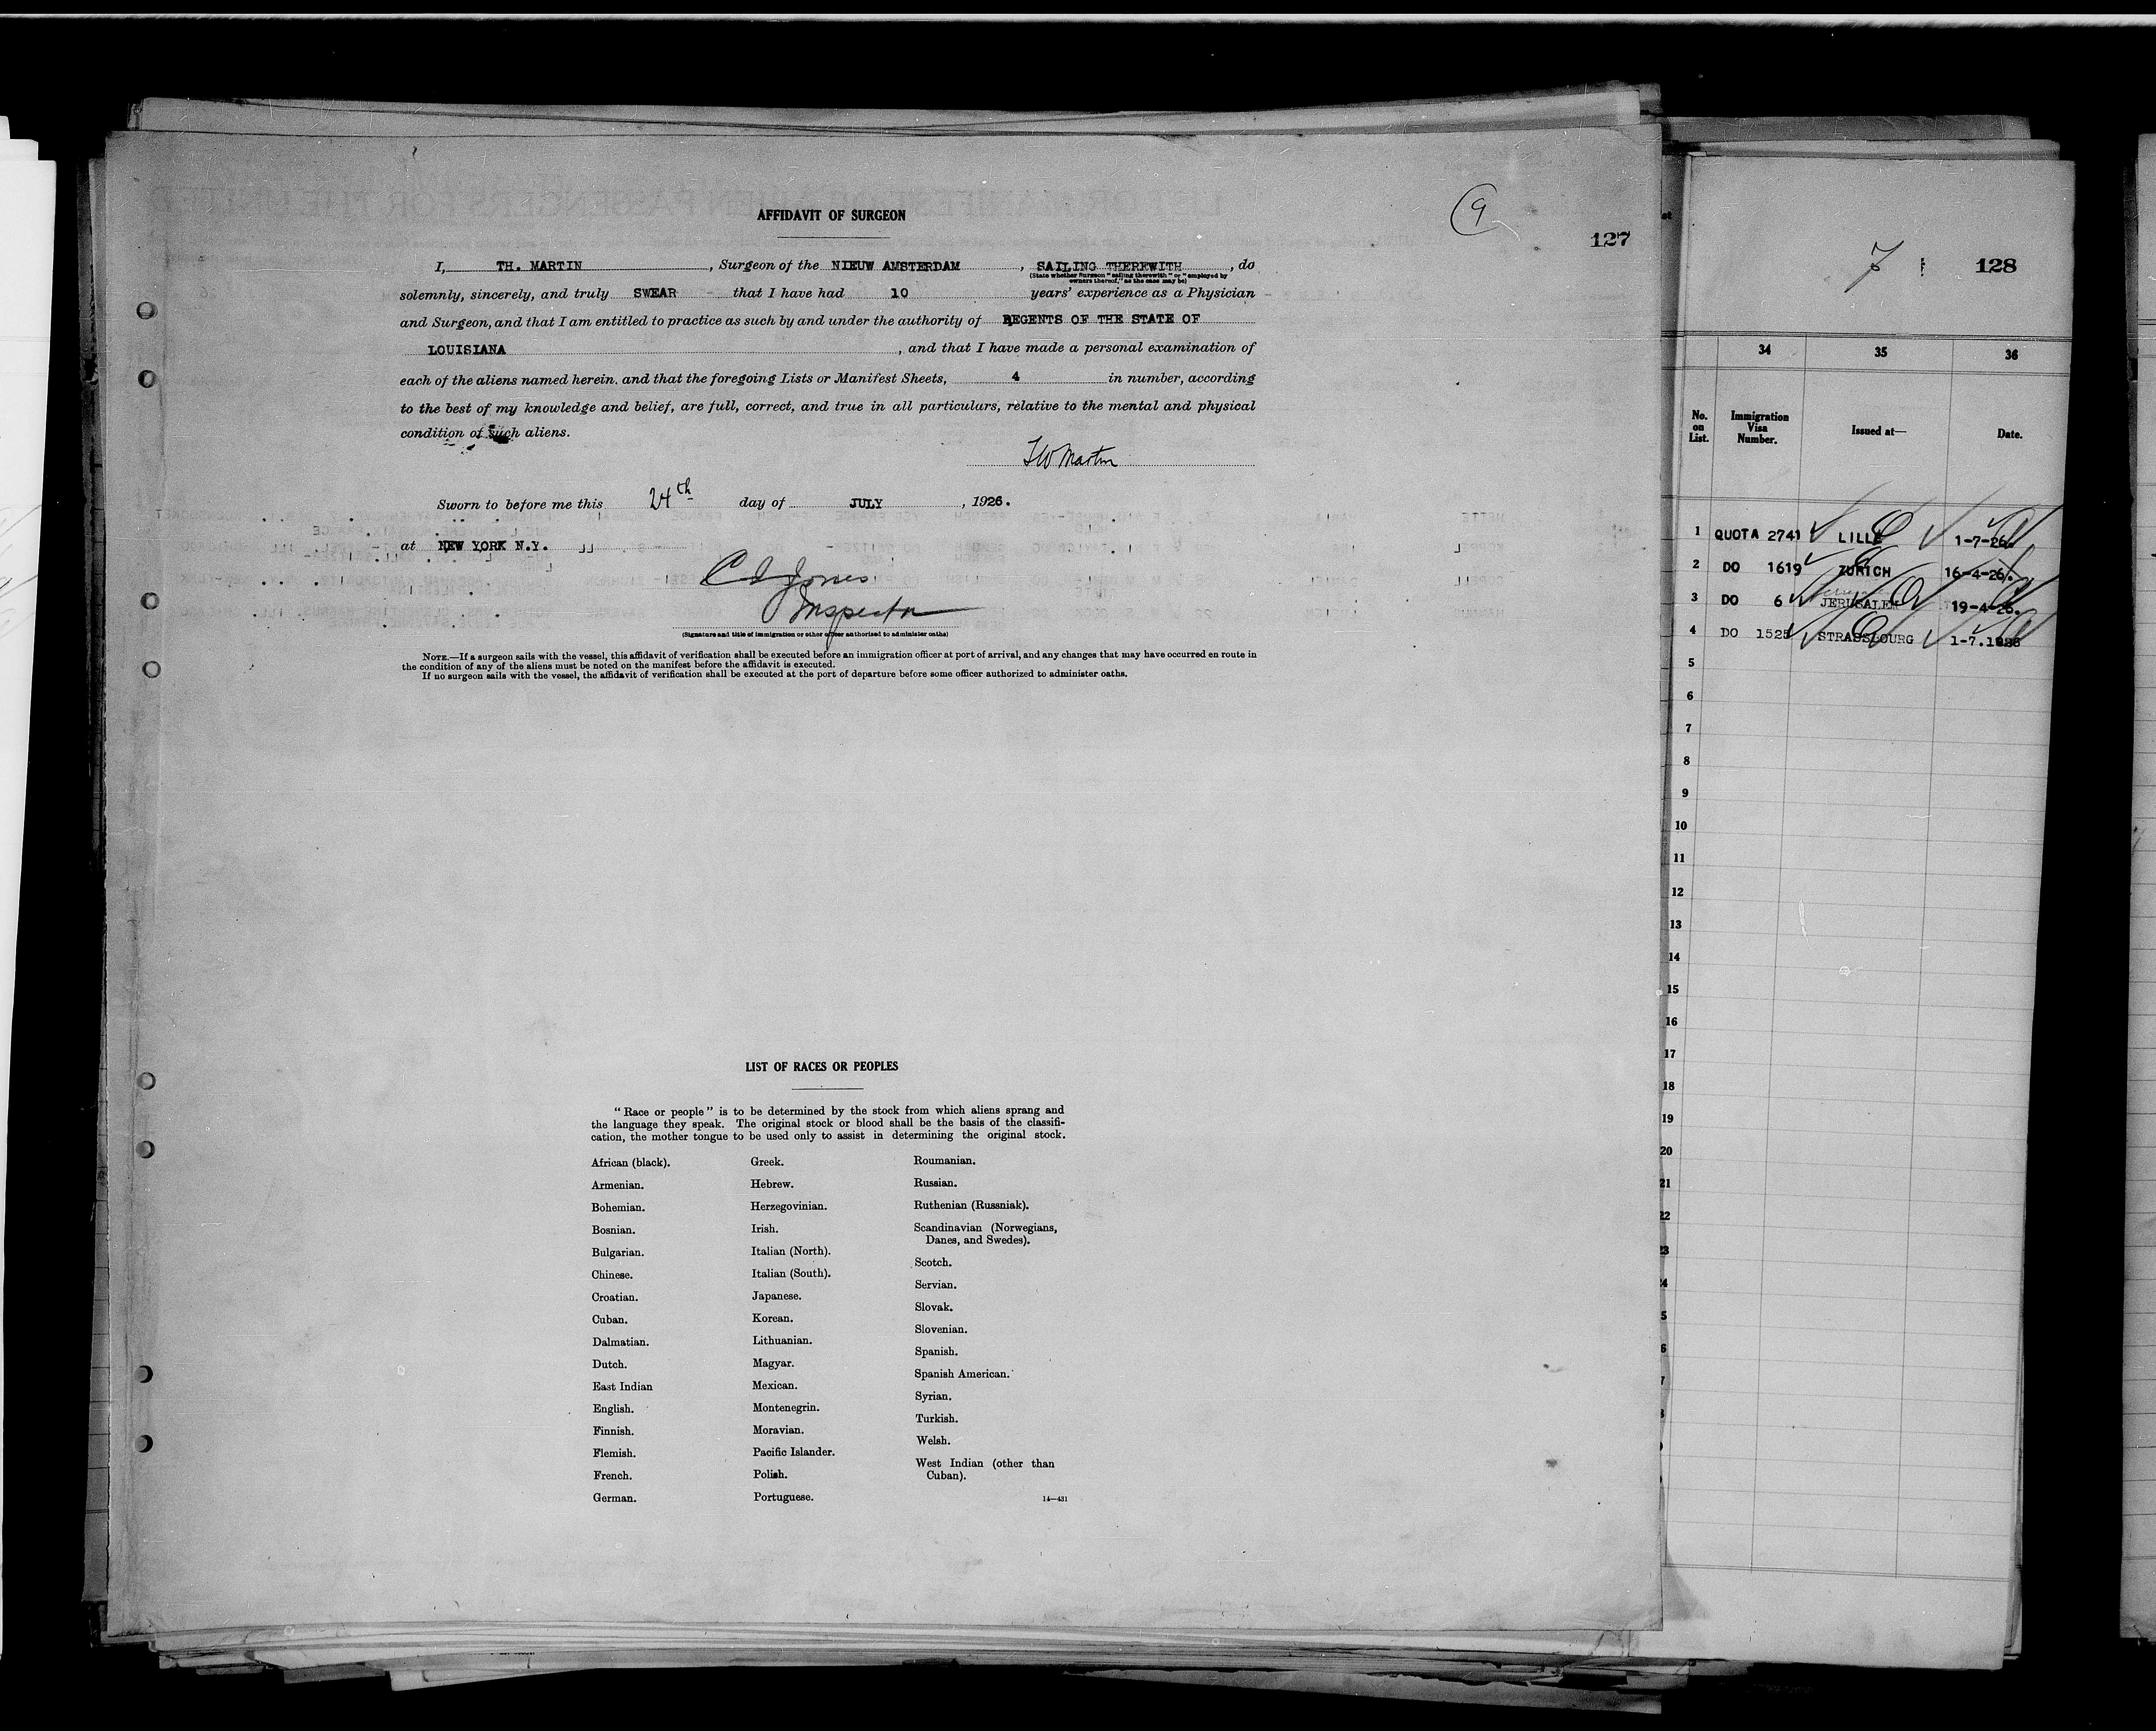 AFFIDAVIT OF SURGEON
9
127
I, TH. MARTIN, Surgeon of the NIEUW AMSTERDAM, SAILING THEREWITH, do
(State whether Surgeon "sailing therewith" or "employed by
owners thereof," as the case may be)
solemnly, sincerely, and truly SWEAR that I have had 10 years' experience as a Physician
and Surgeon, and that I am entitled to practice as such by and under the authority of REGENTS OF THE STATE OF
LOUISIANA, and that I have made a personal examination of
each of the aliens named herein, and that the foregoing Lists or Manifest Sheets, 4 in number, according
to the best of my knowledge and belief, are full, correct, and true in all particulars, relative to the mental and physical
condition of such aliens.
Martin
Sworn to before me this 24th day of JULY, 1926.
at NEW YORK N.Y.
Jones
Inspector
(Signature and title of immigration or other officer authorized to administer oaths)
NOTE.—If a surgeon sails with the vessel, this affidavit of verification shall be executed before an immigration officer at port of arrival, and any changes that may have occurred en route in
the condition of any of the aliens must be noted on the manifest before the affidavit is executed.
If no surgeon sails with the vessel, the affidavit of verification shall be executed at the port of departure before some officer authorized to administer oaths.
LIST OF RACES OR PEOPLES
"Race or people" is to be determined by the stock from which aliens sprang and
the language they speak. The original stock or blood shall be the basis of the classifi-
cation, the mother tongue to be used only to assist in determining the original stock.
African (black).
Armenian.
Bohemian.
Bosnian.
Bulgarian.
Chinese.
Croatian.
Cuban.
Dalmatian.
Dutch.
East Indian
English.
Finnish.
Flemish.
French.
German.
Greek.
Hebrew.
Herzegovinian.
Irish.
Italian (North).
Italian (South).
Japanese.
Korean.
Lithuanian.
Magyar.
Mexican.
Montenegrin.
Moravian.
Pacific Islander.
Polish.
Portuguese.
Roumanian.
Russian.
Ruthenian (Russniak).
Scandinavian (Norwegians,
Danes, and Swedes).
Scotch.
Servian.
Slovak.
Slovenian.
Spanish.
Spanish American.
Syrian.
Turkish.
Welsh.
West Indian (other than
Cuban).
14—431
7
128
34 35 36
No. on List. Immigration Visa Number. Issued at— Date.
1 QUOTA 2741 LILLE 1-7-26.
2 DO 1619 ZURICH 16-4-26.
3 DO 6 JERUSALEM 19-4-26.
4 DO 1525 STRASSBOURG 1-7.1926
5
6
7
8
9
10
11
12
13
14
15
16
17
18
19
20
21
22
23